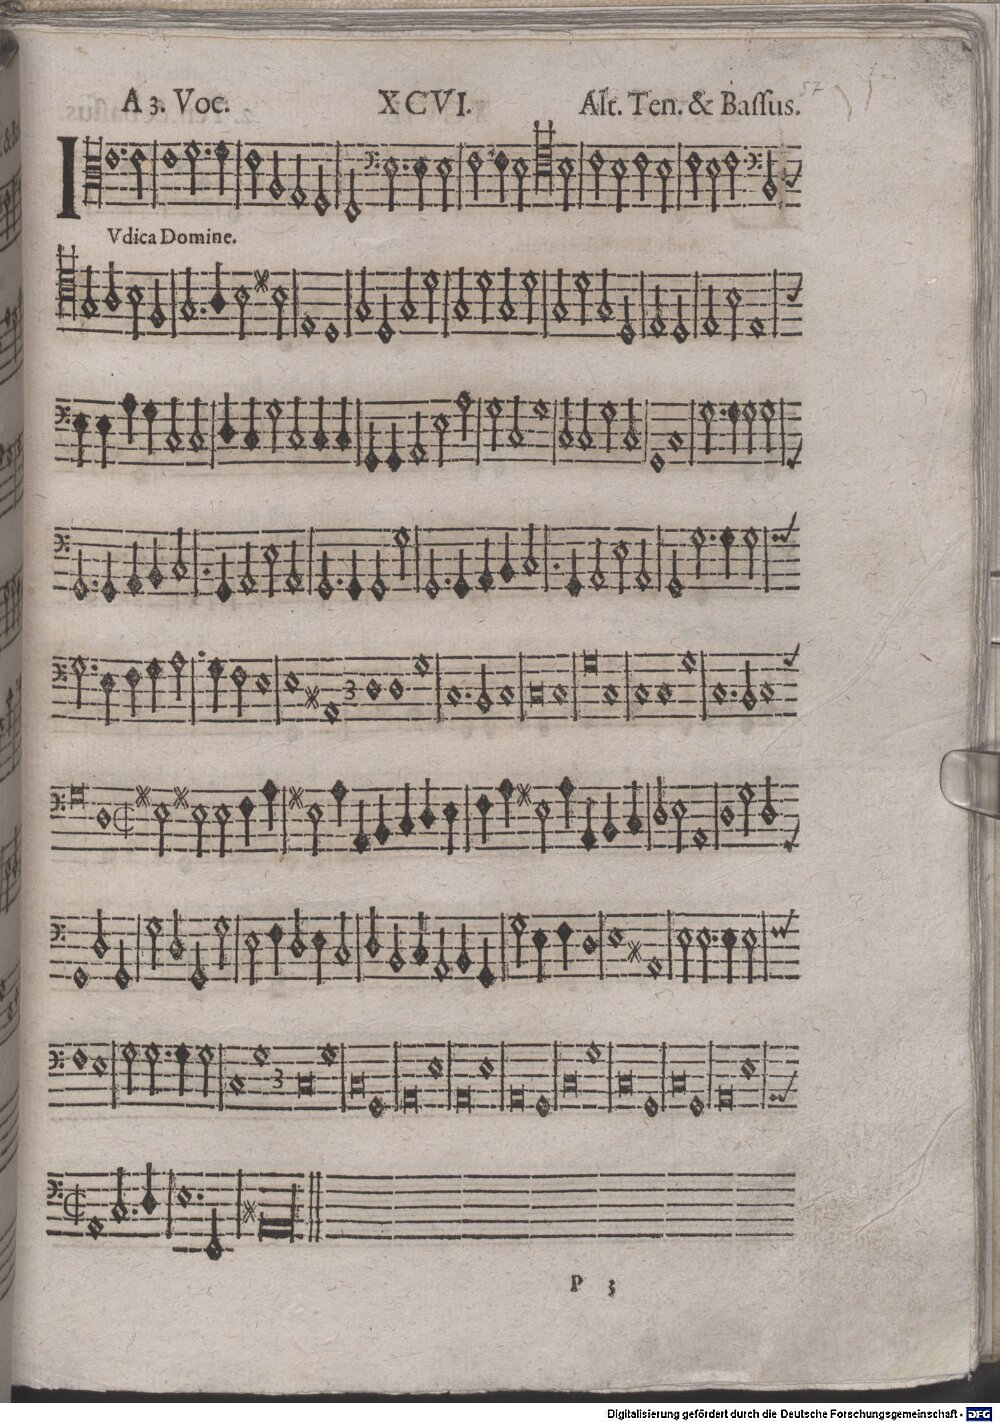 A 3. Voc. XCVI. Alt. Ten. & Bassus.
57
IVdica Domine.
3
3
P 3
Digitalisierung gefördert durch die Deutsche Forschungsgemeinschaft - DFG